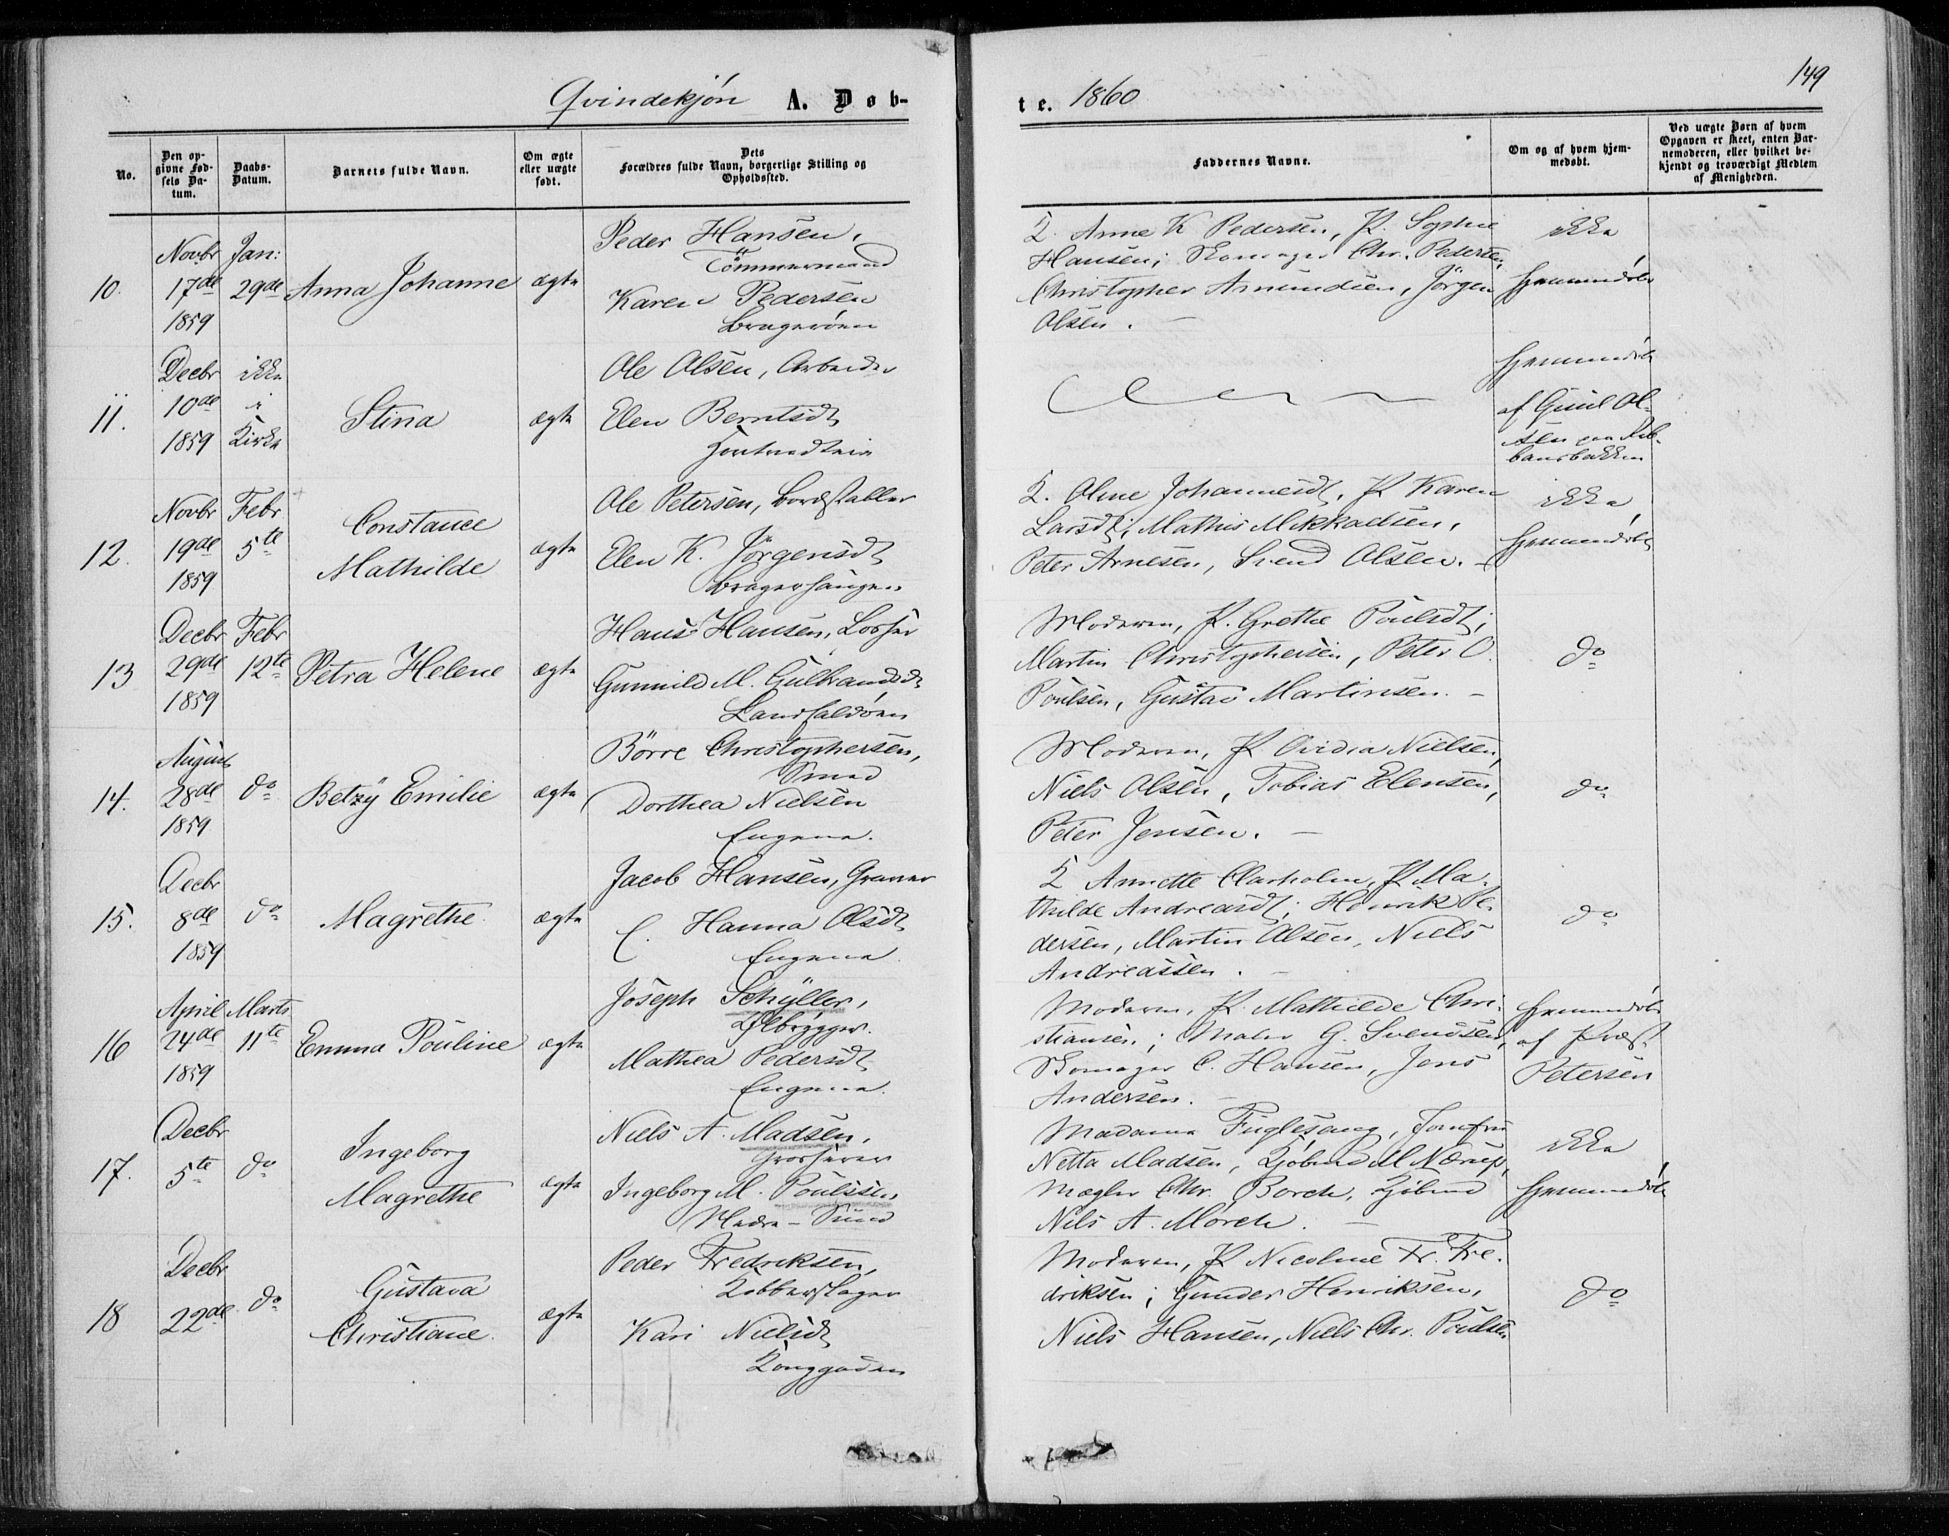 Qvindekjøn A. Døb-
te. 1860
149
No.
Den op-
givne Fød-
sels Da-
tum.
Daabs-
Datum.
Barnets fulde Navn.
Om ægte
eller uægte
født.
Dets
Forældres fulde Navn, borgerlige Stilling og
Opholdssted.
Faddernes Navne.
Om og af hvem hjem-
medøbt.
Ved uægte Børn af hvem
Opgaven er skeet, enten Bar-
nemoderen, eller hvilket be-
kjendt og troværdigt Medlem
af Menigheden.
10.
Novbr
17de
1859
Jan:
29de
Anna Johanne
ægte
Peder Hansen,
Tömmermand
Karen Pedersen
Bragerøen
K. Anne K Pedersen, P. Sophie
Hansen; Skomager Chr. Pedersen,
Christopher Amundsen, Jörgen
Olsen.
ikke
hjemmedøbt
11.
Decbr
10de
1859
ikke
i
Kirke
Stina
ægte
Ole Olsen, Arbeider
Elen Berntsdt
hjemmedøbt
af Gunil Ol-
sen paa
12.
Novbr
19de
1859
Febr
5te
Constance
Mathilde
ægte
Ole Petersen, Bordstabler
Elen K. Jörgensdt
Bragerhaugen
K. Oline Johannesdt, P Karen
Larsdt; Mathis Mikkaelsen,
Peter Arnesen, Svend Olsen. -
ikke
hjemmedøbt
13
Decbr
29de
1859
Febr
12te
Petra Helene
ægte
Hans Hansen, Losser
Gunnild M. Gulbrandsdt
Landfaldøen
Moderen, P. Grethe Poulsdt;
Martin Christophersen, Peter O.
Poulsen, Gustav Martinsen. -
do
14.
August
28de
1859
do
Betzy Emilie
ægte
Börre Christophersen,
Smed
Dorthea Nielsen
Engene.
Moderen, P. Ovidia Nielsen,
Niels Olsen, Tobias Elensen,
Peter Jensen. -
do
15.
Decbr
8de
1859
do
Magrethe
ægte
Jacob Hansen, Graver
C. Hanna Olsdt
Engene.
K Annette Clasholm, P. Ma-
thilde Andreasdt; Henrik Pe-
dersen, Martin Olsen, Niels
Andreassen. -
do
16
April
24de
1859
Marts
11te
Emma Pouline
ægte
Joseph Schyller,
Ølbrygger.
Mathea Pedersdt
Engene.
Moderen, P. Mathilde Chri-
stiansen; Maler G. Svendsen,
Skomager C. Hansen, Jens
Andersen. -
hjemmedøbt
af Præst
Petersen
17.
Decbr
5te
do
Ingeborg
Magrethe
ægte
Niels A. Madsen,
Grosserer
Ingeborg M. Poulssen,
Nedre-Sund
Madame Fuglesang, Jomfru
Netta Madsen, Kjøbmd M Nærup,
Mægler Chr. Borch, Kjøbmd
Nils A. Mørch. -
ikke
hjemmedøbt
18
Decbr
22de
do
Gustava
Christiane.
ægte
Peder Fredriksen,
Kobberslager
Kari Nielsdt
Konggaden
Moderen, P Nicoline Fr. Fre-
driksen; Gunder Henriksen,
Niels Hansen, Niels Chr. Poulsen
do